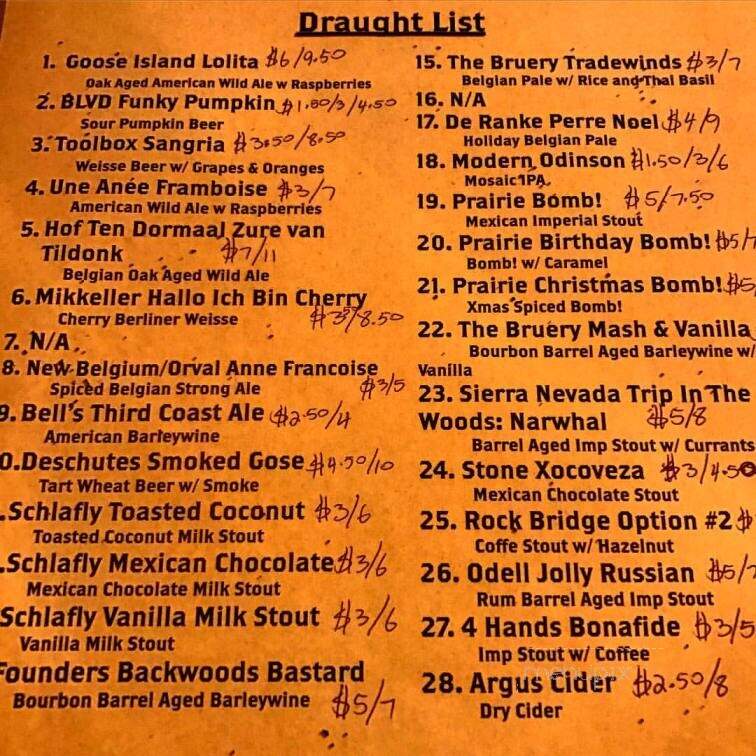 Draught List
1. Goose Island Lolita $6/9.50
Oak Aged American Wild Ale w Raspberries
2. BLVD Funky Pumpkin $1.50/3/4.50
Sour Pumpkin Beer
3. Toolbox Sangria $3.50/8.50
Weisse Beer w/ Grapes & Oranges
4. Une Anée Framboise $3/7
American Wild Ale w Raspberries
5. Hof Ten Dormaal Zure van
Tildonk $7/11
Belgian Oak Aged Wild Ale
6. Mikkeller Hallo Ich Bin Cherry
Cherry Berliner Weisse
7. N/A
8. New Belgium/Orval Anne Francoise
Spiced Belgian Strong Ale $3/5
9. Bell's Third Coast Ale $2.50/4
American Barleywine
0.Deschutes Smoked Gose $4.50/10
Tart Wheat Beer w/ Smoke
.Schlafly Toasted Coconut $3/6
Toasted Coconut Milk Stout
.Schlafly Mexican Chocolate $3/6
Mexican Chocolate Milk Stout
Schlafly Vanilla Milk Stout $3/6
Vanilla Milk Stout
Founders Backwoods Bastard
Bourbon Barrel Aged Barleywine $5/7
15. The Bruery Tradewinds $3/7
Belgian Pale w/ Rice and Thai Basil
16. N/A
17. De Ranke Perre Noel $4/9
Holiday Belgian Pale
18. Modern Odinson $1.50/3/6
Mosaic IPA
19. Prairie Bomb! $5/7.50
Mexican Imperial Stout
20. Prairie Birthday Bomb! $5/7
Bomb! w/ Caramel
21. Prairie Christmas Bomb! $5
Xmas Spiced Bomb!
22. The Bruery Mash & Vanilla
Bourbon Barrel Aged Barleywine w/
Vanilla
23. Sierra Nevada Trip In The
Woods: Narwhal $5/8
Barrel Aged Imp Stout w/ Currants
24. Stone Xocoveza $3/4.50
Mexican Chocolate Stout
25. Rock Bridge Option #2 $
Coffe Stout w/ Hazelnut
26. Odell Jolly Russian $5/7
Rum Barrel Aged Imp Stout
27. 4 Hands Bonafide $3/5
Imp Stout w/ Coffee
28. Argus Cider $2.50/8
Dry Cider